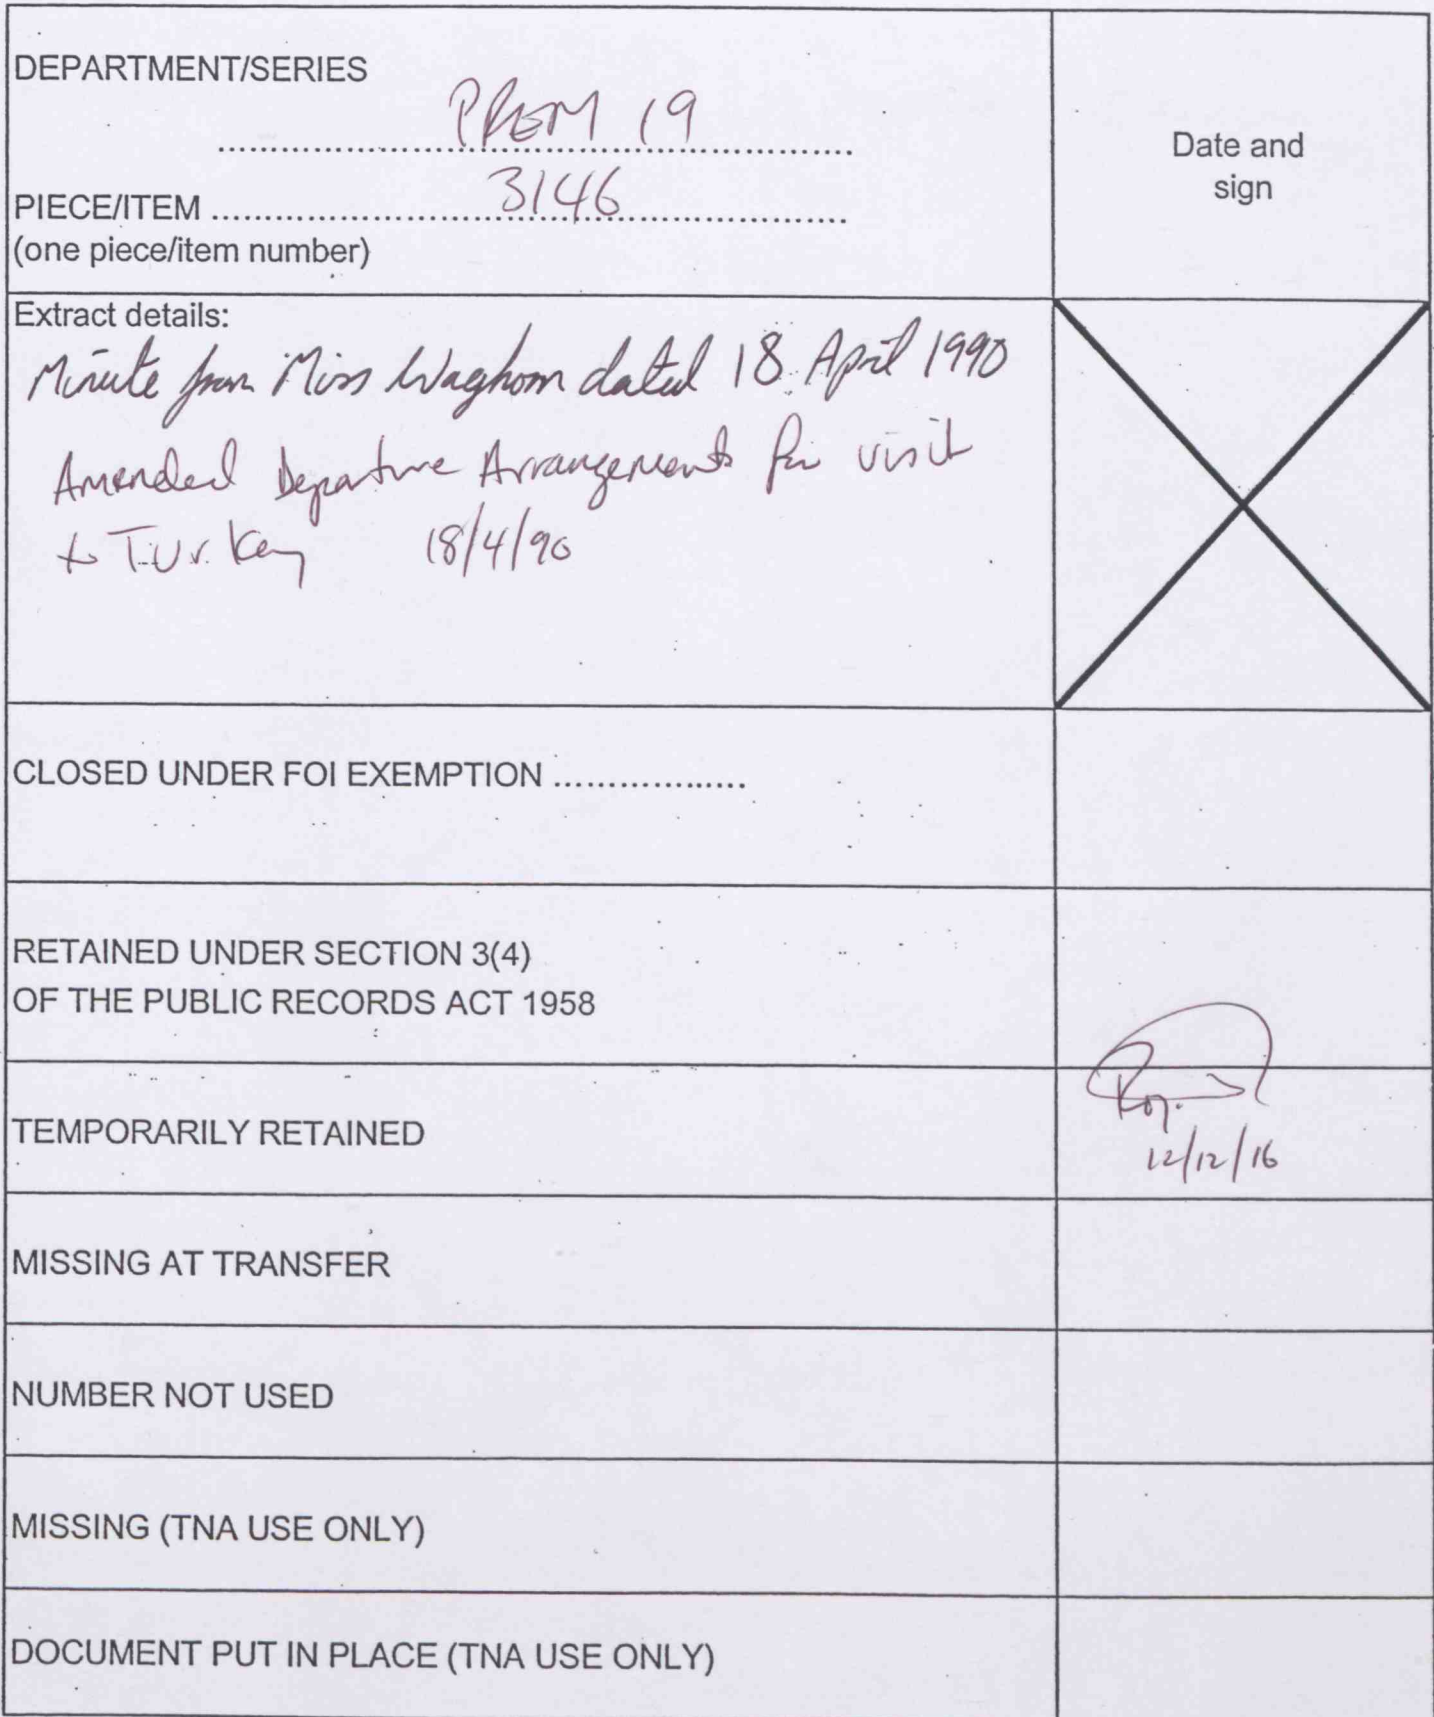 DEPARTMENT/SERIES
PREM 19
Date and
sign
PIECE/ITEM
3146
(one piece/item number)
Extract details:
Minute from Miss Waghorn dated 18 April 1990
Amended Departure Arrangements for visit
to Turkey 18/4/90
CLOSED UNDER FOI EXEMPTION ..................
RETAINED UNDER SECTION 3(4)
OF THE PUBLIC RECORDS ACT 1958
TEMPORARILY RETAINED
12/12/16
MISSING AT TRANSFER
NUMBER NOT USED
MISSING (TNA USE ONLY)
DOCUMENT PUT IN PLACE (TNA USE ONLY)